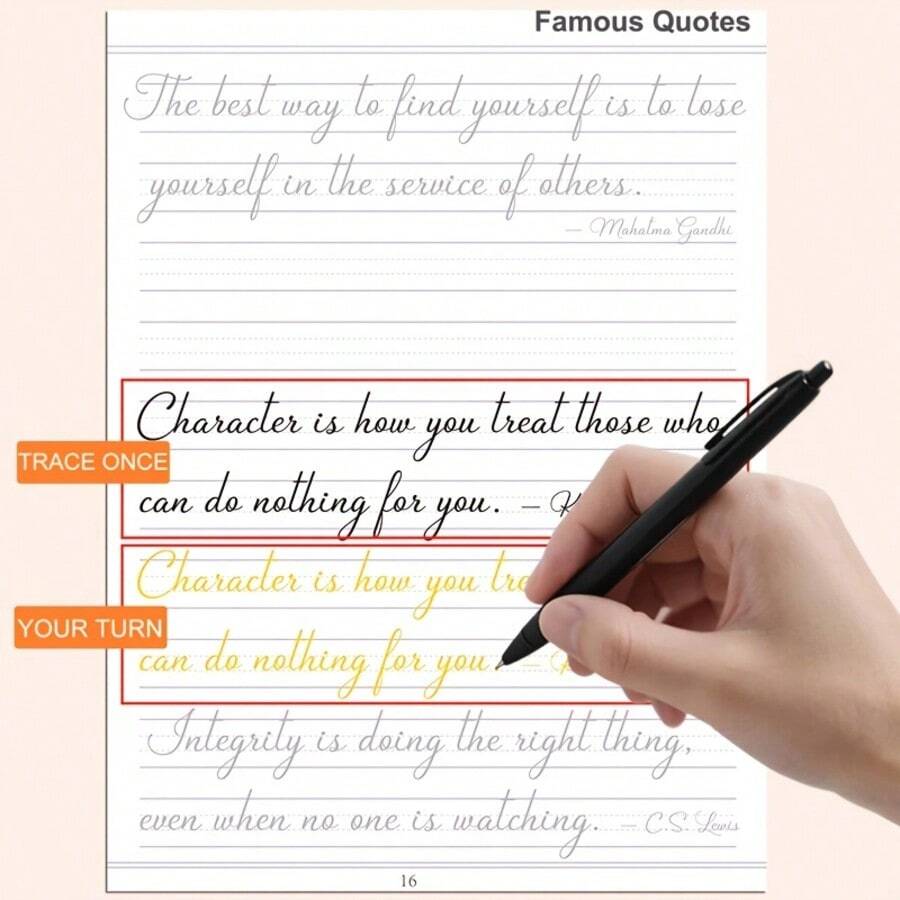 Famous Quotes
The best way to find yourself is to lose
yourself in the service of others.
— Mahatma Gandhi
Character is how you treat those who
TRACE ONCE
can do nothing for you. — K
Character is how you tre
YOUR TURN
can do nothing for you. —
Integrity is doing the right thing,
even when no one is watching. — C.S. Lewis
16